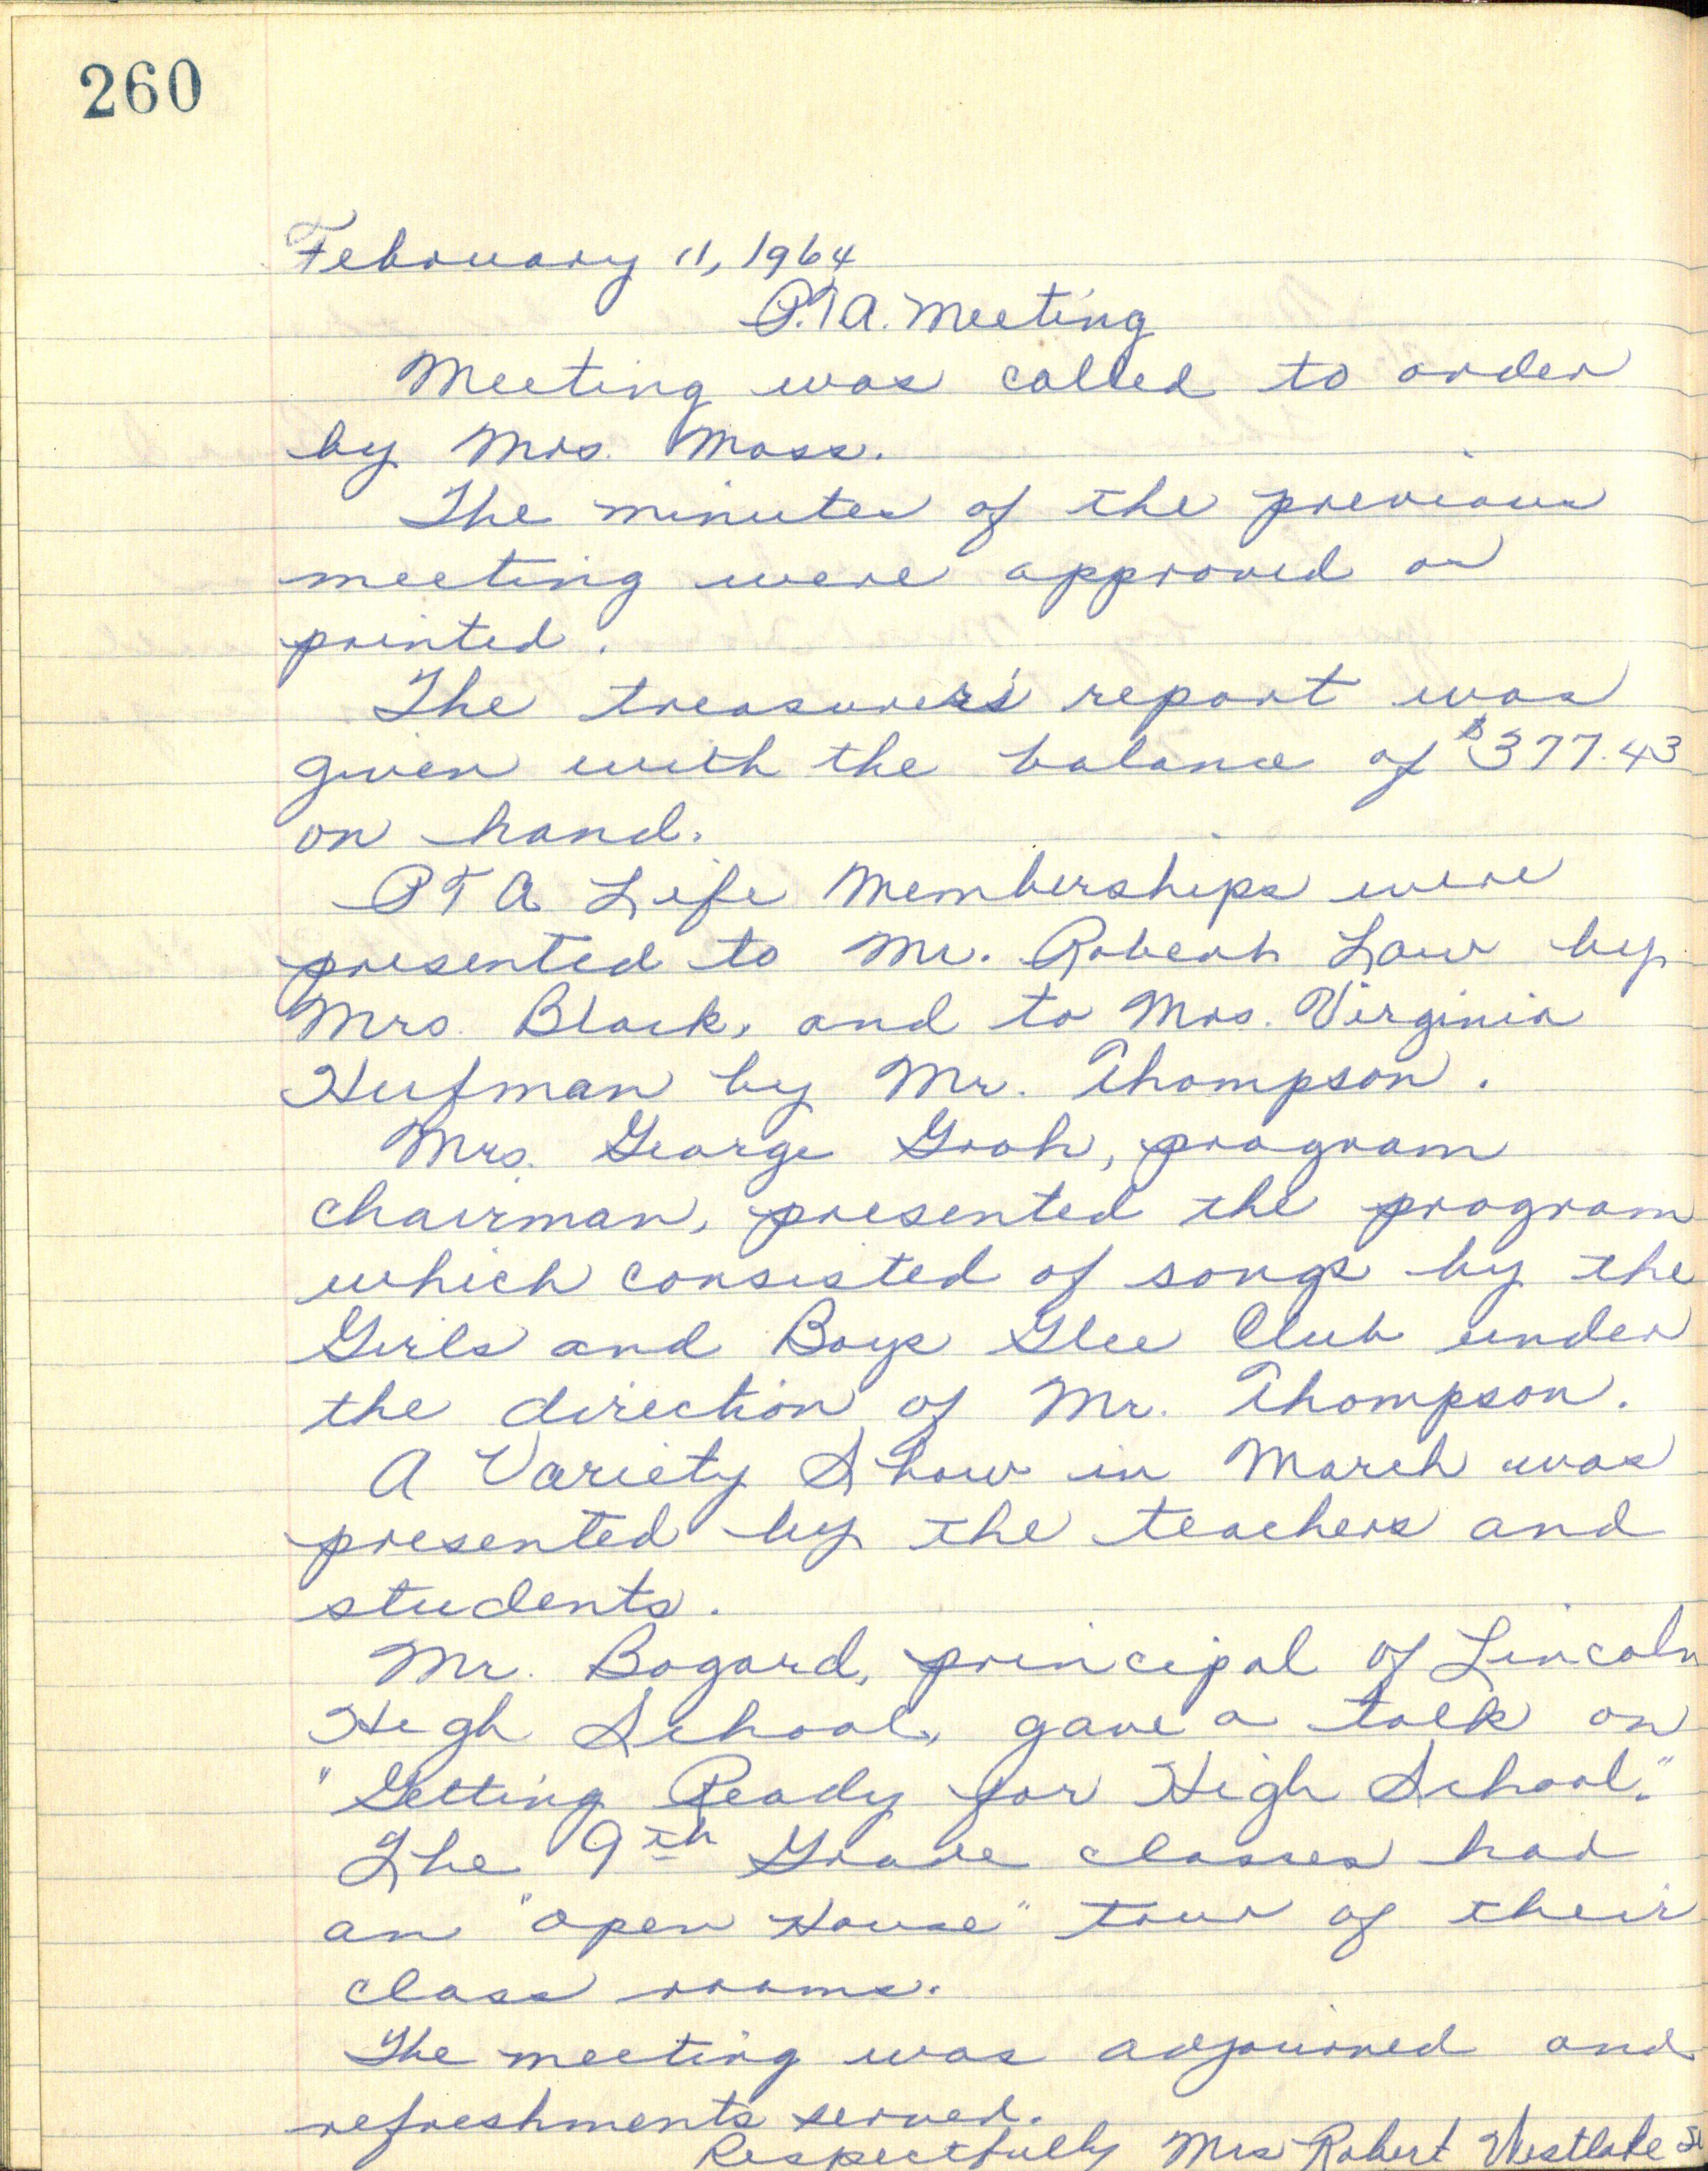 260
February 11, 1964
P.T.A. Meeting
Meeting was called to order
by Mrs. Moss.
The minutes of the previous
meeting were approved as
printed.
The treasurer's report was
given with the balance of $377.43
on hand.
PTA Life Memberships were
presented to Mr. Robert Law by
Mrs. Black, and to Mrs. Virginia
Hufman by Mr. Thompson.
Mrs. George Groh, program
chairman, presented the program
which consisted of songs by the
Girls and Boys Glee Club under
the direction of Mr. Thompson.
A Variety Show in March was
presented by the teachers and
students.
Mr. Bogard, principal of Lincoln
High School, gave a talk on
"Getting Ready for High School."
The 9th Grade classes had
an "open House" tour of their
class rooms.
The meeting was adjourned and
refreshments served.
Respectfully Mrs Robert Westlake